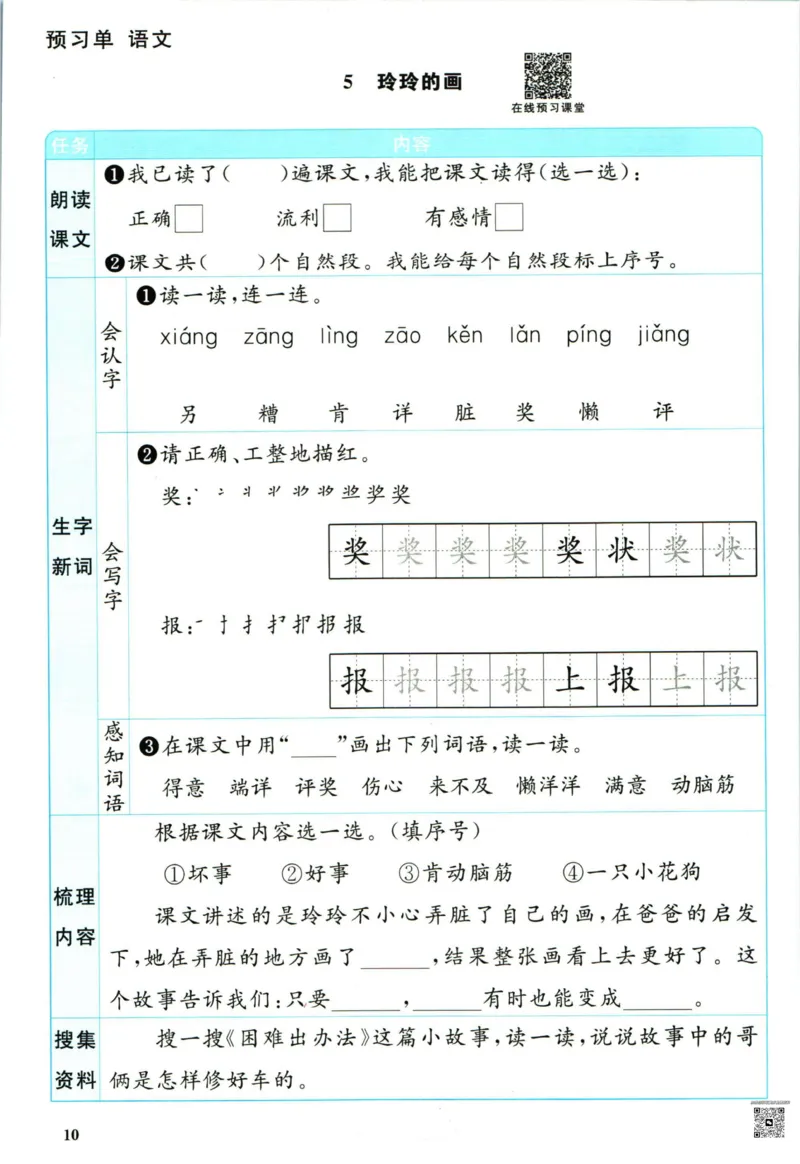 预习单 语文
5 玲玲的画
在线预习课堂
任务 内容
朗读课文
❶我已读了(  )遍课文,我能把课文读得(选一选):
正确□ 流利□ 有感情□
❷课文共(  )个自然段。我能给每个自然段标上序号。
生字新词
会认字
❶读一读,连一连。
xiáng zāng lìng zāo kěn lǎn píng jiǎng
另 糟 肯 详 脏 奖 懒 评
会写字
❷请正确、工整地描红。
奖:
奖 奖 奖 奖 奖 状 奖 状
报:
报 报 报 报 上 报 上 报
感知词语
❸在课文中用“____”画出下列词语,读一读。
得意 端详 评奖 伤心 来不及 懒洋洋 满意 动脑筋
梳理内容
根据课文内容选一选。(填序号)
①坏事 ②好事 ③肯动脑筋 ④一只小花狗
课文讲述的是玲玲不小心弄脏了自己的画,在爸爸的启发
下,她在弄脏的地方画了______,结果整张画看上去更好了。这
个故事告诉我们:只要______,______有时也能变成______。
搜集资料
搜一搜《困难出办法》这篇小故事,读一读,说说故事中的哥
俩是怎样修好车的。
10